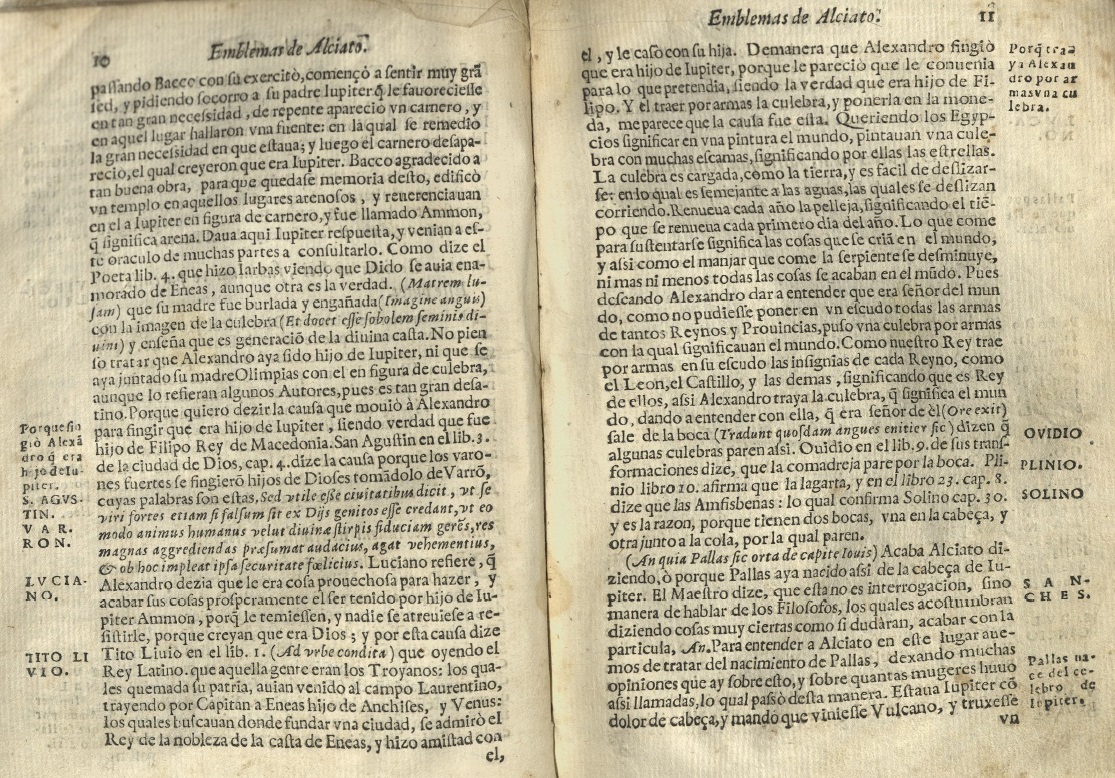 10
Emblemas de Alciato.
passando Bacco con su exercito, començò a sentir muy grã
sed, y pidiendo socorro a su padre Iupiter q̃ le fauoreciesse
en tan gran necessidad, de repente apareciò vn carnero, y
en aquel lugar hallaron vna fuente: en la qual se remediò
la gran necessidad en que estaua; y luego el carnero desapa-
reciò, el qual creyeron que era Iupiter. Bacco agradecido a
tan buena obra, para que quedase memoria desto, edificò
vn templo en aquellos lugares arenosos, y reuerenciauan
en el a Iupiter en figura de carnero, y fue llamado Ammon,
q̃ significa arena. Daua aqui Iupiter respuesta, y venian a es-
te oraculo de muchas partes a consultarlo. Como dize el
Poeta lib. 4. que hizo Iarbas viendo que Dido se auia ena-
morado de Eneas, aunque otra es la verdad. (Matrem lu-
sam) que su madre fue burlada y engañada (Imagine anguis)
con la imagen de la culebra (Et docet esse sobolem seminis di-
uini) y enseña que es generaciõ de la diuina casta. No pien
so tratar que Alexandro aya sido hijo de Iupiter, ni que se
aya juntado su madre Olimpias con el en figura de culebra,
aunque lo refieran algunos Autores, pues es tan gran desa-
tino. Porque quiero dezir la causa que mouiò à Alexandro
para fingir que era hijo de Iupiter, siendo verdad que fue
hijo de Filipo Rey de Macedonia. San Agustin en el lib. 3.
de la ciudad de Dios, cap. 4. dize la causa porque los varo-
nes fuertes se fingierõ hijos de Dioses tomãdolo de Varrõ,
cuyas palabras son estas, Sed vtile esse ciuitatibus dicit, vt se
viri fortes etiam si falsum sit ex Dijs genitos esse credant, vt eo
modo animus humanus velut diuinæ stirpis fiduciam gerẽs, res
magnas aggrediendas præsumat audacius, agat vehementius,
& ob hoc impleat ipsa securitate fœlicius. Luciano refiere, q̃
Alexandro dezia que le era cosa prouechosa para hazer, y
acabar sus cosas prosperamente el ser tenido por hijo de Iu-
piter Ammon, porq̃ le temiessen, y nadie se atreuiese a re-
sistirle, porque creyan que era Dios; y por esta causa dize
Tito Liuio en el lib. 1. (Ad vrbe condita) que oyendo el
Rey Latino. que aquella gente eran los Troyanos: los qua-
les quemada su patria, auian venido al campo Laurentino,
trayendo por Capitan a Eneas hijo de Anchises, y Venus:
los quales buscauan donde fundar vna ciudad, se admirò el
Rey de la nobleza de la casta de Eneas, y hizo amistad con
el,
Porque fin
giò Alexã
dro q̃ era
hijo de Iu-
piter.
S. AGVS-
TIN.
VAR.
RON.
LVCIA-
NO.
TITO LI
VIO.
Emblemas de Alciato.
11
el, y le casò con su hija. Demanera que Alexandro fingiò
que era hijo de Iupiter, porque le pareciò que le conuenia
para lo que pretendia, siendo la verdad que era hijo de Fi-
lipo. Y el traer por armas la culebra, y ponerla en la mone-
da, me parece que la causa fue esta. Queriendo los Egyp-
cios significar en vna pintura el mundo, pintauan vna cule-
bra con muchas escamas, significando por ellas las estrellas.
La culebra es cargada, como la tierra, y es facil de deslizar-
se: en lo qual es semejante a las aguas, las quales se deslizan
corriendo. Renueua cada año la pelleja, significando el tiẽ-
po que se renueua cada primero dia del año. Lo que come
para sustentarse significa las cosas que se criã en el mundo,
y assi como el manjar que come la serpiente se desminuye,
ni mas ni menos todas las cosas se acaban en el mũdo. Pues
desseando Alexandro dar a entender que era señor del mun
do, como no pudiesse poner en vn escudo todas las armas
de tantos Reynos y Prouincias, puso vna culebra por armas
con la qual significauan el mundo. Como nuestro Rey trae
por armas en su escudo las insignias de cada Reyno, como
el Leon, el Castillo, y las demas, significando que es Rey
de ellos, assi Alexandro traya la culebra, q̃ significa el mun
do, dando a entender con ella, q̃ era señor de èl (Ore exit)
sale de la boca (Tradunt quosdam angues enitier sic) dizen q̃
algunas culebras paren assi. Ouidio en el lib. 9. de sus trans-
formaciones dize, que la comadreja pare por la boca. Pli-
nio libro 10. afirma que la lagarta, y en el libro 23. cap. 8.
dize que las Amfisbenas: lo qual confirma Solino cap. 30.
y es la razon, porque tienen dos bocas, vna en la cabeça, y
otra junto a la cola, por la qual paren.
(An quia Pallas sic orta de capite Iouis) Acaba Alciato di-
ziendo, ò porque Pallas aya nacido assi de la cabeça de Iu-
piter. El Maestro dize, que esta no es interrogacion, sino
manera de hablar de los Filosofos, los quales acostumbran
diziendo cosas muy ciertas como si dudaran, acabar con la
particula, An. Para entender a Alciato en este lugar aue-
mos de tratar del nacimiento de Pallas, dexando muchas
opiniones que ay sobre esto, y sobre quantas mugeres huuo
assi llamadas, lo qual passò desta manera. Estaua Iupiter cõ
dolor de cabeça, y mandò que viniesse Vulcano, y truxesse
vn
Porq̃ traa
ya Alexan
dro por ar
mas vna cu
lebra.
OVIDIO
PLINIO.
SOLINO
SAN-
CHES.
Pallas na-
ce del ce-
lebro de
Iupiter.